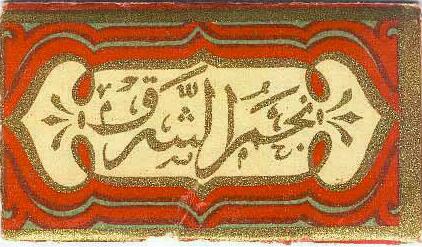 نجم الشرق